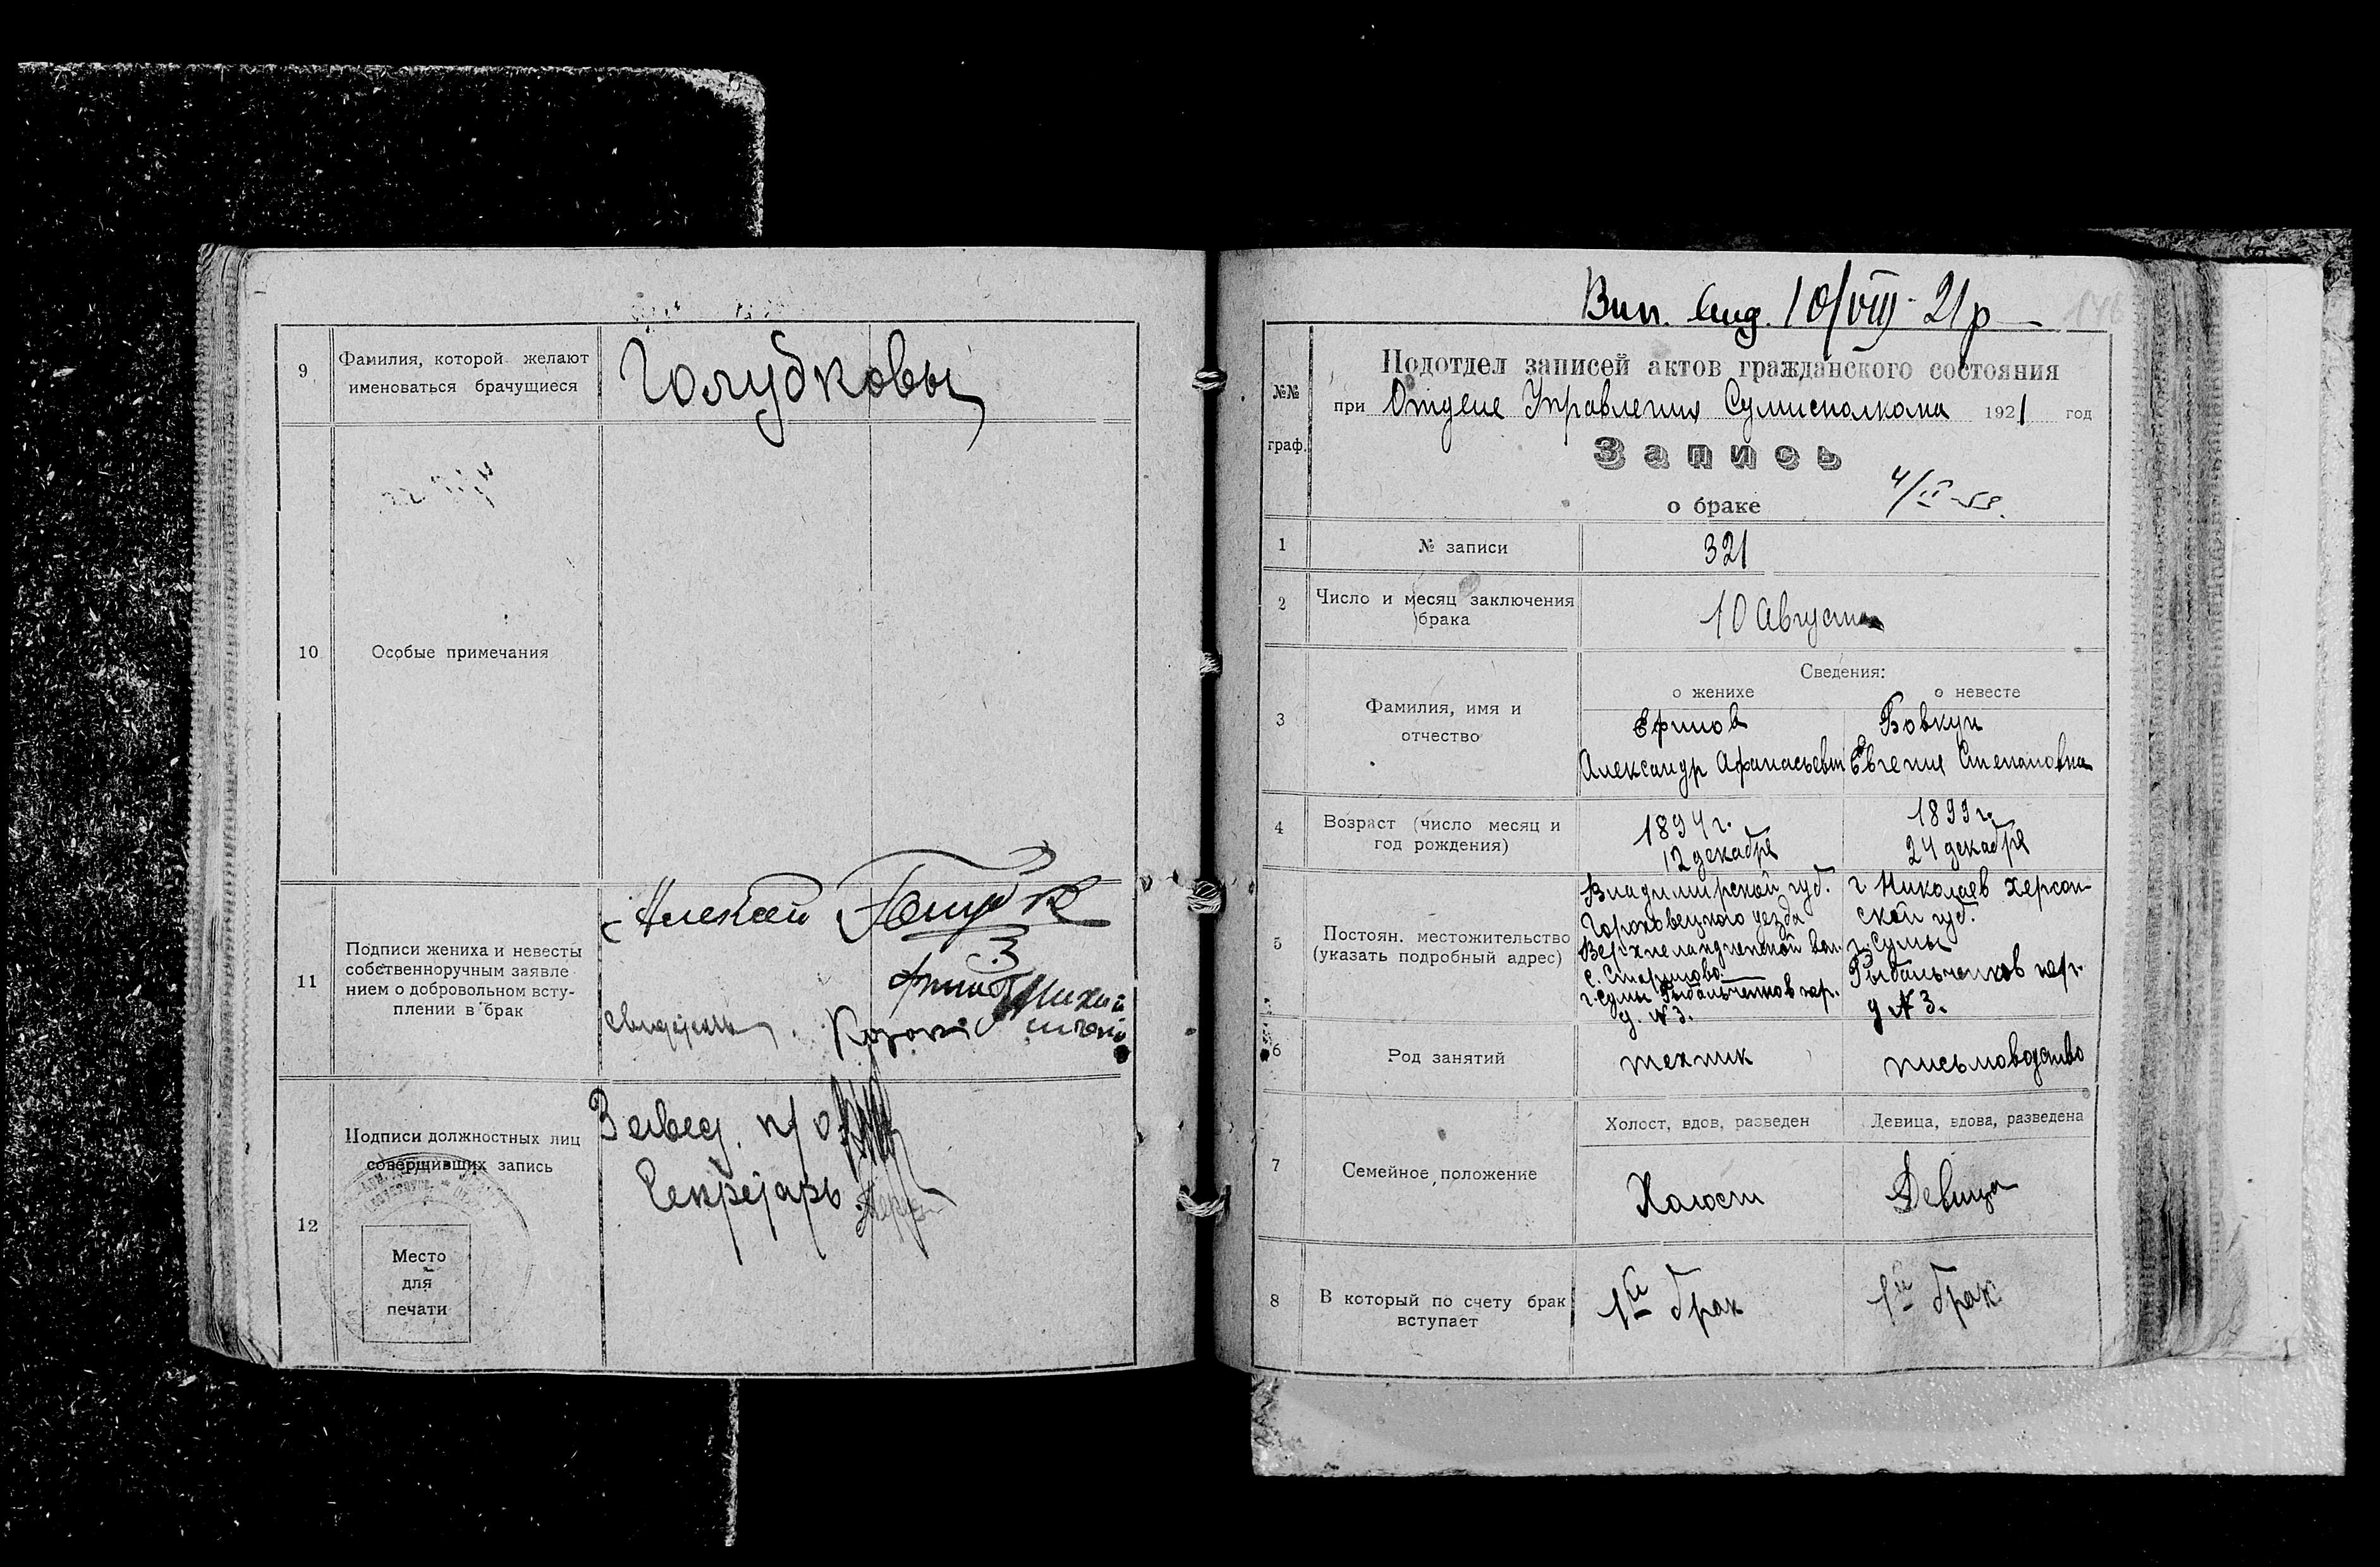 9
Фамилия, которой желают
именоваться брачущиеся
Голубковы
10
Особые примечания
11
Подписи жениха и невесты
собственноручным заявле
нием о добровольном всту-
плении в брак
Алексей
12
Подписи должностных лиц
совершивших запись
Завед. п/о
Секретарь
Место
для
печати
Вип. Вид. 10/VIII-21р
146
№№
граф.
Подотдел записей актов гражданского состояния
при Отделе Управления Сумисполкома 1921 год
Запись
о браке
4/II-53.
1
№ записи
321
2
Число и месяц заключения
брака
10 Августа
Сведения:
о женихе
о невесте
3
Фамилия, имя и
отчество
Ефимов
Александр Афанасьевич
Бовкун
Евгения Степановна
4
Возраст (число месяц и
год рождения)
1894 г.
12 декабря
1899 г.
24 декабря
5
Постоян. местожительство
(указать подробный адрес)
Владимирской губ.
Гороховецкого уезда
Верхнеландеховской вол.
г. Сумы Рыбальченков пер.
д. № 3.
г Николаев Херсон-
ской губ.
г. Сумы
Рыбальченков пер.
д № 3.
6
Род занятий
техник
письмоводство
7
Семейное положение
Холост, вдов, разведен
Холост
Девица, вдова, разведена
Девица
8
В который по счету брак
вступает
1й брак
1й брак